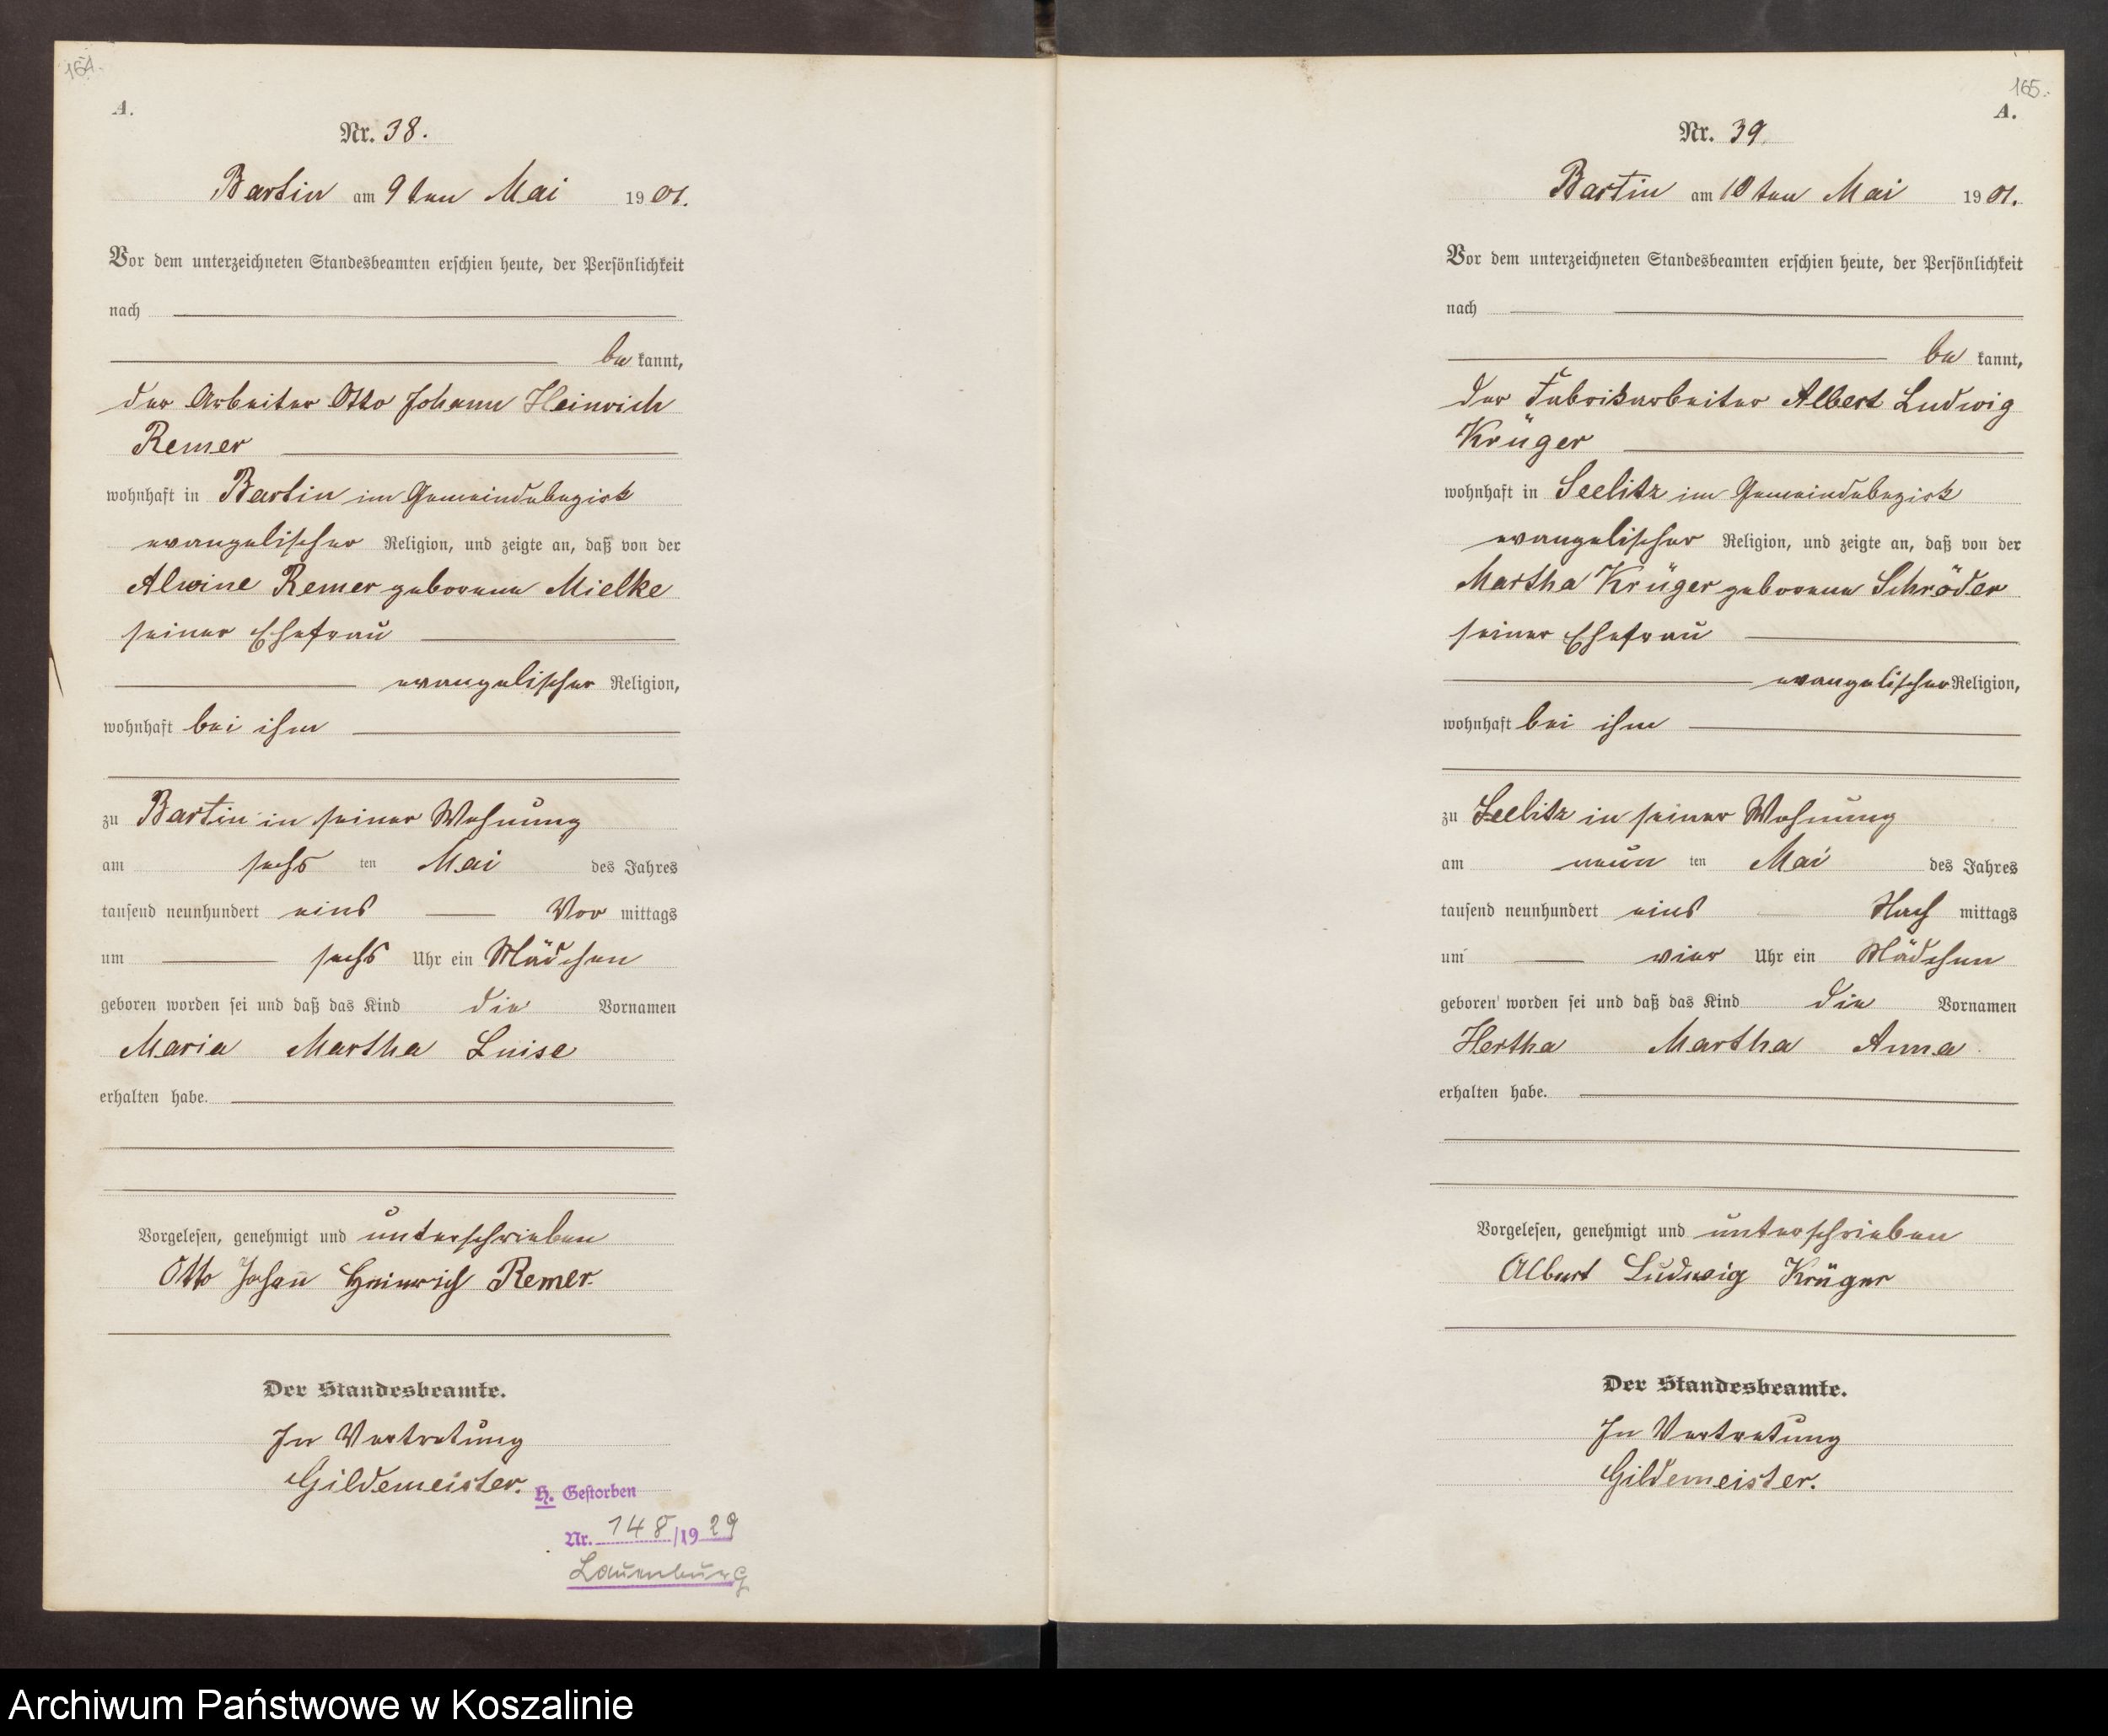 164.
A.
Nr. 38.
Bartin am 9ten Mai 1901.
Vor dem unterzeichneten Standesbeamten erschien heute, der Persönlichkeit
nach
bekannt,
der Arbeiter Otto Johann Heinrich
Remer
wohnhaft in Bartin im Gemeindebezirk
evangelischer Religion, und zeigte an, daß von der
Alwine Remer geborene Mielke
seiner Ehefrau
evangelischer Religion,
wohnhaft bei ihm
zu Bartin in seiner Wohnung
am sechs ten Mai des Jahres
tausend neunhundert eins Vor mittags
um sechs Uhr ein Mädchen
geboren worden sei und daß das Kind die Vornamen
Maria Martha Luise
erhalten habe.
Vorgelesen, genehmigt und unterschrieben
Otto Johan Heinrich Remer.
Der Standesbeamte.
In Vertretung
Gildemeister.
H. Gestorben
Nr. 148/1929
Lauenburg
165.
A.
Nr. 39.
Bartin am 10ten Mai 1901.
Vor dem unterzeichneten Standesbeamten erschien heute, der Persönlichkeit
nach
bekannt,
der Fabrikarbeiter Albert Ludwig
Krüger
wohnhaft in Seelitz im Gemeindebezirk
evangelischer Religion, und zeigte an, daß von der
Martha Krüger geborene Schröder
seiner Ehefrau
evangelischer Religion,
wohnhaft bei ihm
zu Seelitz in seiner Wohnung
am neun ten Mai des Jahres
tausend neunhundert eins Nach mittags
um vier Uhr ein Mädchen
geboren worden sei und daß das Kind die Vornamen
Hertha Martha Anna
erhalten habe.
Vorgelesen, genehmigt und unterschrieben
Albert Ludwig Krüger
Der Standesbeamte.
In Vertretung
Gildemeister.
Archiwum Państwowe w Koszalinie